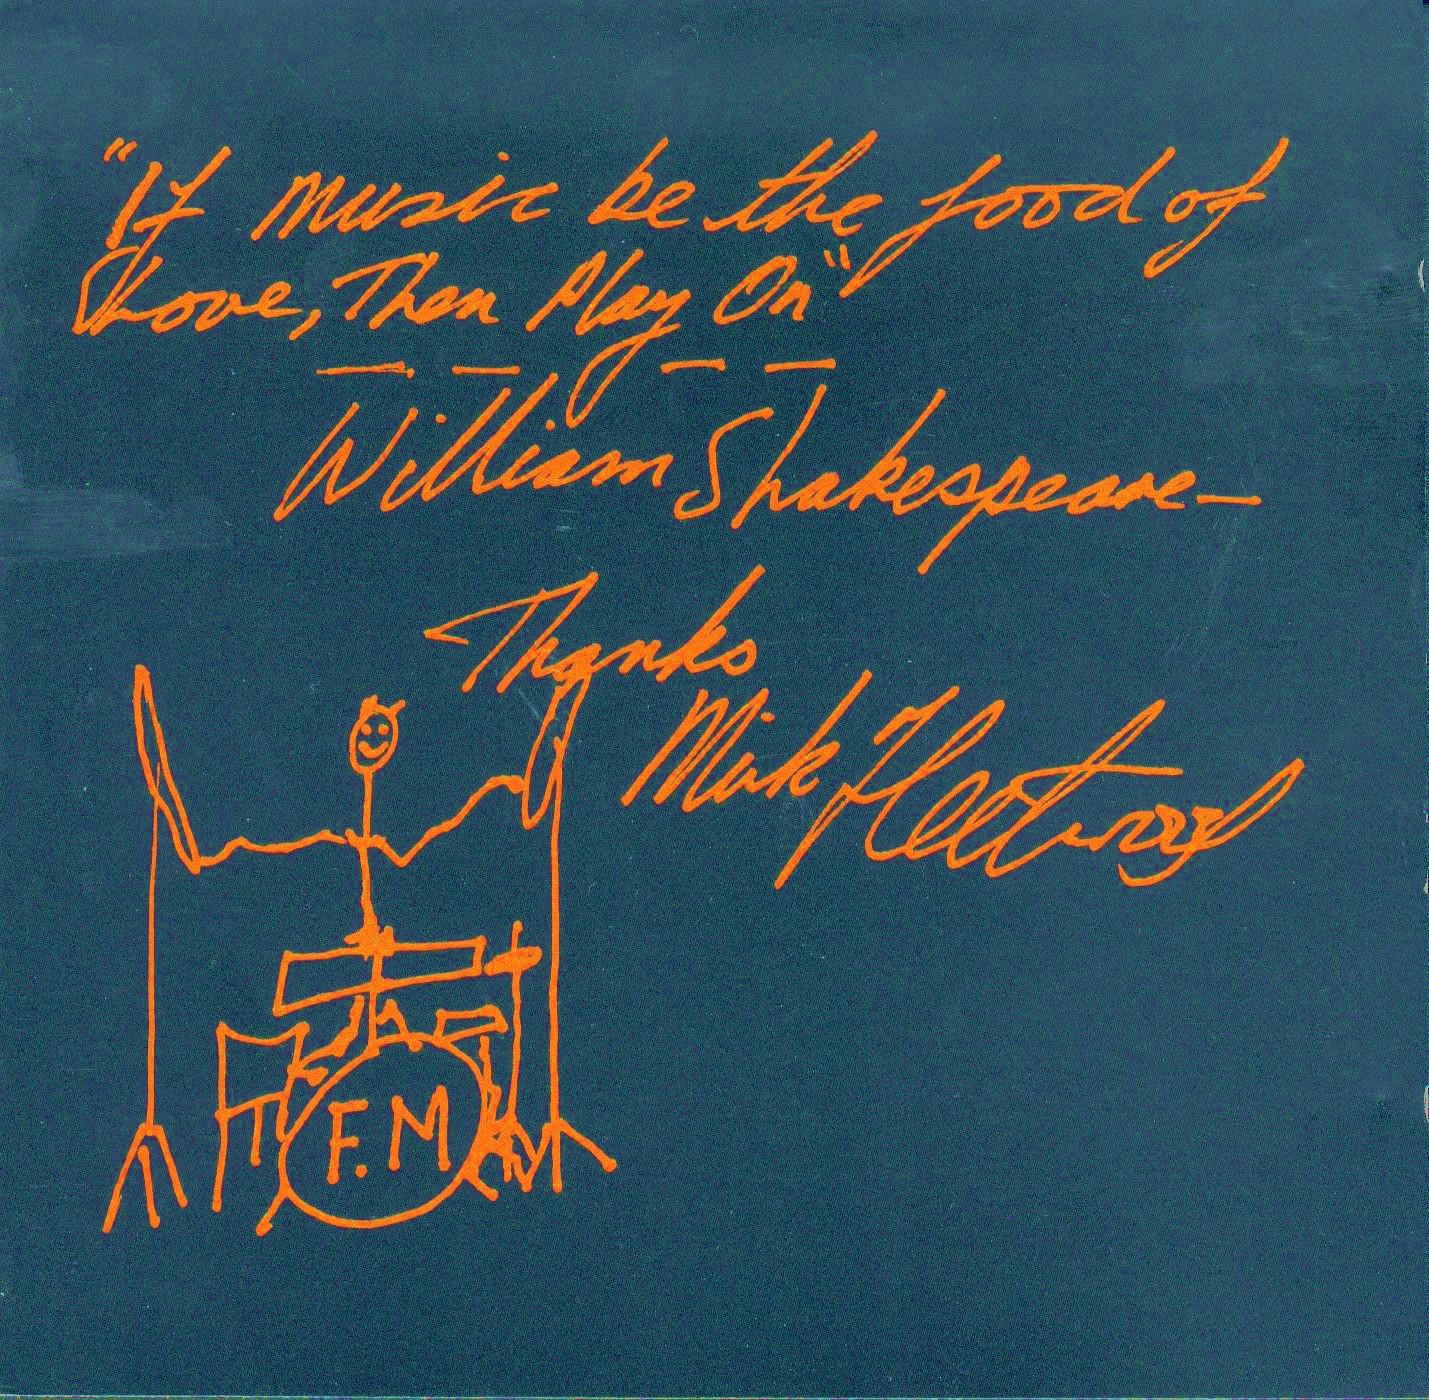 "If music be the food of
Love, Then Play On"
William Shakespeare—
Thanks
Mick Fleetwood
F.M